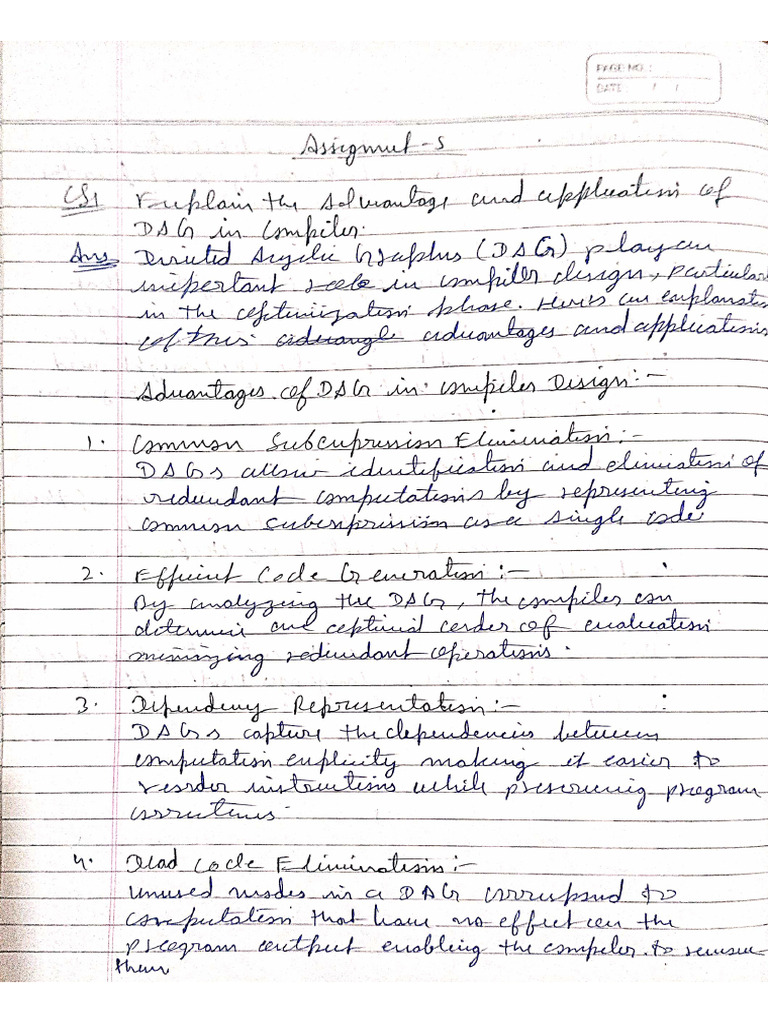 PAGE NO. :
DATE : / /
Assignmut - 5
Q1 Explain the advantage and application of
DAG in Compiler.
Ans Directed Acyclic Graphs (DAG) play an
important role in compiler design, particular
in the optimization phase. Here's an explanatio
of this advantages and applications
Advantages of DAG in compiler Design :-
1. Common Subexpression Elimination :-
DAGs allow identification and elimination of
redundant computations by representing
common subexpression as a single code
2. Efficient Code Generation :-
By analyzing the DAG, the compiler can
determine one optimal order of evaluation
minimizing redundant operations.
3. Dependency Representation :-
DAGs capture the dependencies between
computation explicity making it easier to
reorder instructions while preserving program
correctness.
4. Dead Code Elimination :-
Unused nodes in a DAG correspond to
computation that have no effect on the
program output enabling the compiler to remove
them